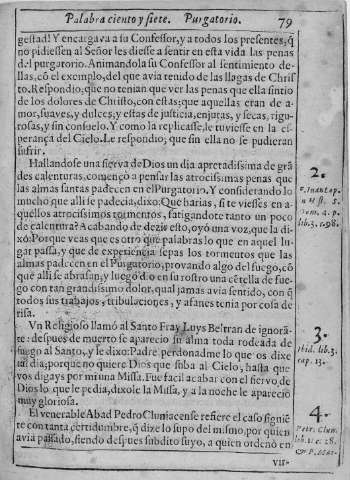 Palabra ciento y siete. Purgatorio. 79
gestad! Y encargava a su Confessor, y a todos los presentes, q̃
no pidiessen al Señor les diesse a sentir en esta vida las penas
del purgatorio. Animandola su Confessor al sentimiento de-
llas, cõ el exemplo, del que avia tenido de las llagas de Chris
to. Respondio, que no tenian que ver las penas que ella sintio
de los dolores de Christo, con estas; que aquellas eran de a-
mor, suaves, y dulces; y estas de justicia, enjutas, y secas, rigu-
rosas, y sin consuelo. Y como la replicasse, le tuviesse en la es-
perança del Cielo. Le respondio; que sin ella no se pudieran
sufrir.
Hallandose una sierva de Dios un dia apretadissima de grã
des calenturas, començo a pensar las atrocissimas penas que
las almas santas padecen en el Purgatorio. Y considerando lo
mucho que alli se padecia, dixo: Que harias, si te viesses en a-
quellos atrocissimos tormentos, fatigandote tanto un poco
de calentura? Acabando de dezir esto, oyó una voz, que la di-
xó: Porque veas que es otro que palabras lo que en aquel lu-
gar passa, y que de experiencia sepas los tormentos que las
almas padecen en el Purgatorio, provando algo del fuego, cõ
que alli se abrasan; y luego dio en su rostro una cẽtella de fue-
go con tan grandissimo dolor, qual jamas avia sentido, con q̃
todos sus trabajos, tribulaciones, y afanes tenia por cosa de
risa.
Vn Religioso llamó al Santo Fray Luys Beltran de ignorã-
te: despues de muerto se aparecio su alma toda rodeada de
fuego al Santo, y le dixo: Padre perdonadme lo que os dixe
tal dia; porque no quiere Dios que suba al Cielo, hasta que
vos digays por mi una Missa. Fue facil acabar con el siervo de
Dios lo que le pedia, dixole la Missa, y a la noche le aparecio
muy gloriosa.
El venerable Abad Pedro Cluniacense refiere el caso siguiẽ
te con tanta certidumbre, q̃ dize lo supo del mismo, por quien
avia passado, siendo despues subdito suyo, a quien ordenó en
vir-
2.
lib. 3. c. 98.
3.
Ibid. lib. 3.
cap. 13.
4.
Petr. Clun.